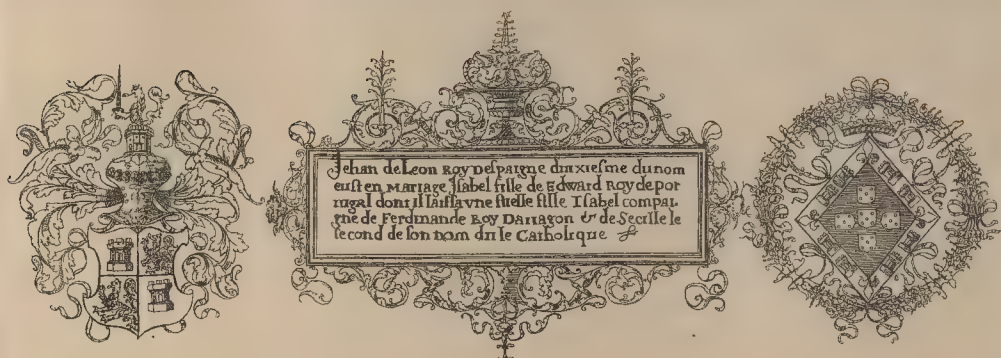 Jehan de Leon Roy Despaigne dixxiesme du nom
eust en MARiAGE Isabel fille de Edward Roy de por
tugal dont il laissa vne seulle fille Isabel compai
gne de Ferdinande Roy Darragon & de Secille le
second de son nom dit le Catholique